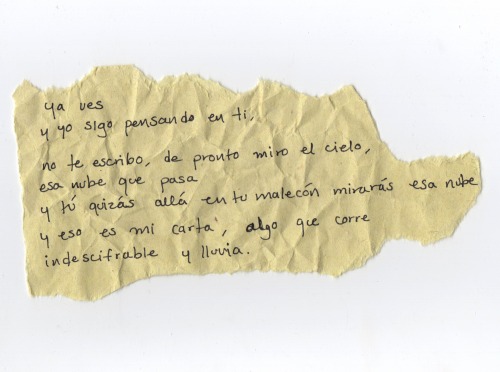 ya ves
y yo sigo pensando en ti,
no te escribo, de pronto miro el cielo,
esa nube que pasa
y tú quizás allá en tu malecón mirarás esa nube
y eso es mi carta, algo que corre
indescifrable y lluvia.